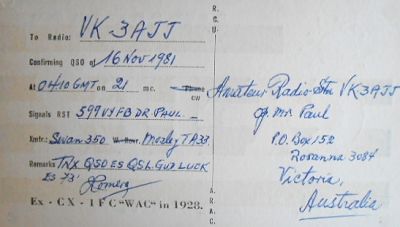 To Radio: VK3AJJ
Confirming QSO of 16 NOV 1981
At 0410 GMT on 21 mc. Phone
CW
Signals RST 599 VY FB DR PAUL
Xmtr: Swan 350 W. Rcvr. Mosley TA33
Remarks TNX QSO ES QSL GUD LUCK
ES 73'
Ex - CX - 1 F C "WAC" in 1928.
R.
C.
U.
A
R.
A.
C.
Amateur Radio-Stn VK3AJJ
Mr. Paul
P.O. Box 152
Rosanna 3084
Victoria,
Australia